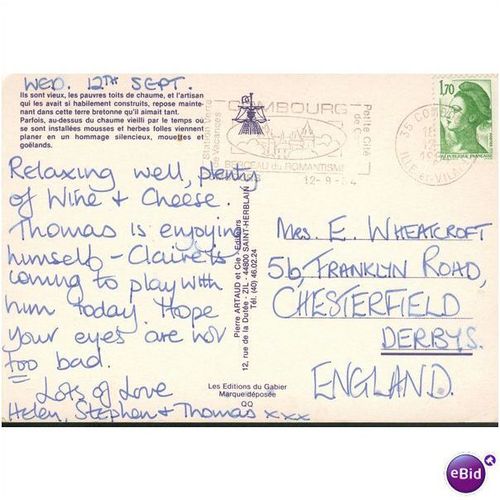 WED. 12TH SEPT.
Ils sont vieux, les pauvres toits de chaume, et l'artisan
qui les avait si habilement construits, repose mainte-
nant dans cette terre bretonne qu'il aimait tant.
Parfois, au-dessus du chaume vieilli par le temps où
se sont installées mousses et herbes folles viennent
planer en un hommage silencieux, mouettes et
goélands.
Relaxing well, plenty
of Wine & Cheese.
Thomas is enjoying
himself - Claire is
coming to play with
him today Hope
your eyes are not
too bad.
Lots of Love
Helen, Stephen & Thomas xxx
Pierre ARTAUD et Cie - Editeurs
12, rue de la Dutée - ZIL - 44800 SAINT-HERBLAIN
Tél. (40) 46.02.24
Les Editions du Gabier
Marque déposée
QQ
COMBOURG
Station Verte
de Vacances
Petite Cité
de C
BERCEAU du ROMANTISME
12-9-84
35 COMBOURG
ILLE-et-VILAINE
1,70
REPUBLIQUE FRANÇAISE
MRS. E. WHEATCROFT
56, FRANKLYN ROAD,
CHESTERFIELD
DERBYS.
ENGLAND.
eBid